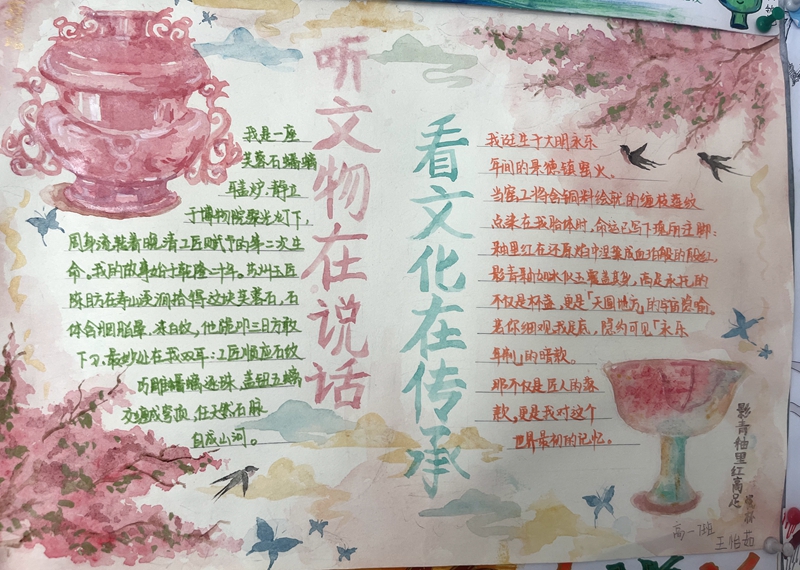 听文物在说话
看文化在传承
我是一座
芙蓉石蟠螭
耳盖炉.静立
于博物院聚光灯下,
周身流转着晚清工匠赋予的第二次生
命。我的故事始于乾隆二十年。苏州玉匠
在寿山溪涧拾得这块芙蓉石,石
体含胭脂晕.冰白纹,他跪叩三日方敢
下刀.最妙处在我双耳:工匠顺应石纹
巧雕蟠螭逐珠.盖钮五螭
交缠成穹顶.任天然石脉
自成山河。
我诞生于大明永乐
年间的景德镇窑火、
当窑工将含铜料绘就的缠枝莲纹
点染在我胎体时.命运已写下瑰丽注脚:
釉里红在还原焰中涅槃成血珀般的殷红。
影青釉如冰似玉覆盖其身,高足承托的
不仅是杯盏.更是「天圆地方」的宇宙隐喻。
若你细观我足底,隐约可见「永乐
年制」的暗款。
那不仅是匠人的落
款.更是我对这个
世界最初的记忆。
影青釉里红高足
高一7班
王怡茹